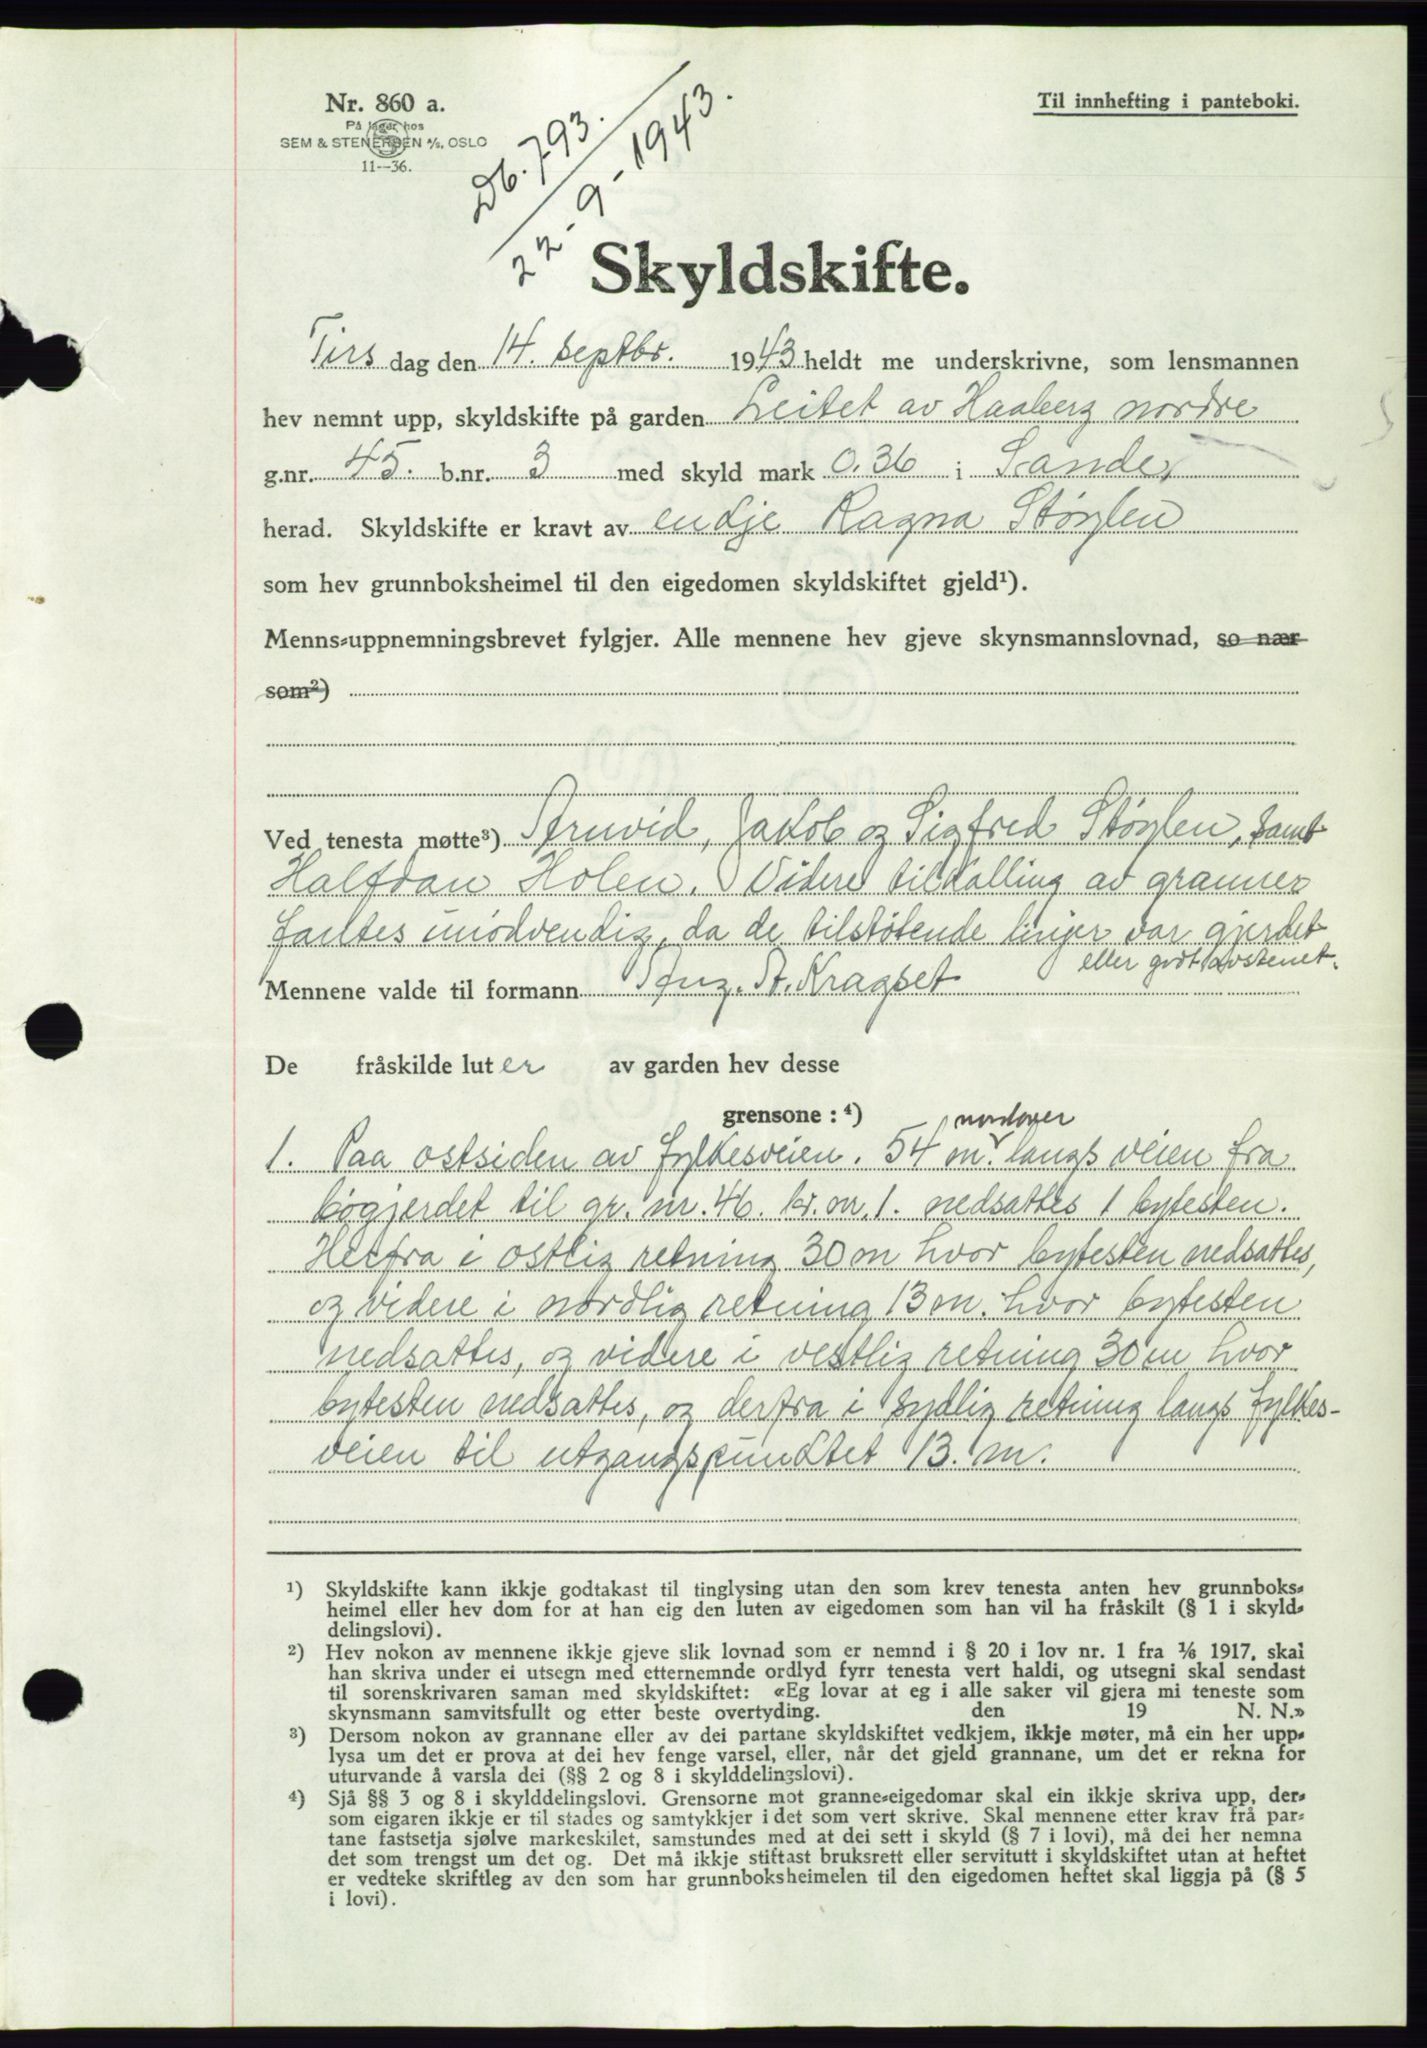 Nr. 860 a.
På lager hos
SEM & STENERSEN A/S, OSLO
11—36.
Til innhefting i panteboki.
Db. 793.
22-9-1943.
Skyldskifte.
Tirs dag den 14. septbr. 1943 heldt me underskrivne, som lensmannen
hev nemnt upp, skyldskifte på garden Leitet av Haaberg nordre
g.nr. 45. b.nr. 3 med skyld mark 0.36 i Sande,
herad. Skyldskifte er kravt av enkje Ragna Støylen
som hev grunnboksheimel til den eigedomen skyldskiftet gjeld¹).
Menns-uppnemningsbrevet fylgjer. Alle mennene hev gjeve skynsmannslovnad, so nær
som²)
Ved tenesta møtte³) Arnvid, Jakob og Sigfred Støylen, samt
Halfdan Holen. Videre tilkalling av granner
fantes unødvendig, da de tilstøtende linjer var gjerdet
eller godt avstenet.
Mennene valde til formann Aug. St. Kragset
De fråskilde luter av garden hev desse
grensone: ⁴)
nordover
1. Paa ostsiden av fylkesveien. 54 m. langs veien fra
bøgjerdet til gr. nr. 46. br. nr. 1. nedsattes 1 bytesten.
Herfra i ostlig retning 30 m hvor bytesten nedsattes,
og videre i nordlig retning 13 m. hvor bytesten
nedsattes, og videre i vestlig retning 30 m hvor
bytesten nedsattes, og derfra i sydlig retning langs fylkes-
veien til utgangspunktet 13. m.
¹) Skyldskifte kann ikkje godtakast til tinglysing utan den som krev tenesta anten hev grunnboks-
heimel eller hev dom for at han eig den luten av eigedomen som han vil ha fråskilt (§ 1 i skyld-
delingslovi).
²) Hev nokon av mennene ikkje gjeve slik lovnad som er nemnd i § 20 i lov nr. 1 fra 1/6 1917, skal
han skriva under ei utsegn med etternemnde ordlyd fyrr tenesta vert haldi, og utsegni skal sendast
til sorenskrivaren saman med skyldskiftet: «Eg lovar at eg i alle saker vil gjera mi teneste som
skynsmann samvitsfullt og etter beste overtyding. den 19 N. N.»
³) Dersom nokon av grannane eller av dei partane skyldskiftet vedkjem, ikkje møter, må ein her upp-
lysa um det er prova at dei hev fenge varsel, eller, når det gjeld grannane, um det er rekna for
uturvande å varsla dei (§§ 2 og 8 i skylddelingslovi).
⁴) Sjå §§ 3 og 8 i skylddelingslovi. Grensorne mot granne-eigedomar skal ein ikkje skriva upp, der-
som eigaren ikkje er til stades og samtykkjer i det som vert skrive. Skal mennene etter krav frå par-
tane fastsetja sjølve markeskilet, samstundes med at dei sett i skyld (§ 7 i lovi), må dei her nemna
det som trengst um det og. Det må ikkje stiftast bruksrett eller servitutt i skyldskiftet utan at heftet
er vedteke skriftleg av den som har grunnboksheimelen til den eigedomen heftet skal liggja på (§ 5
i lovi).